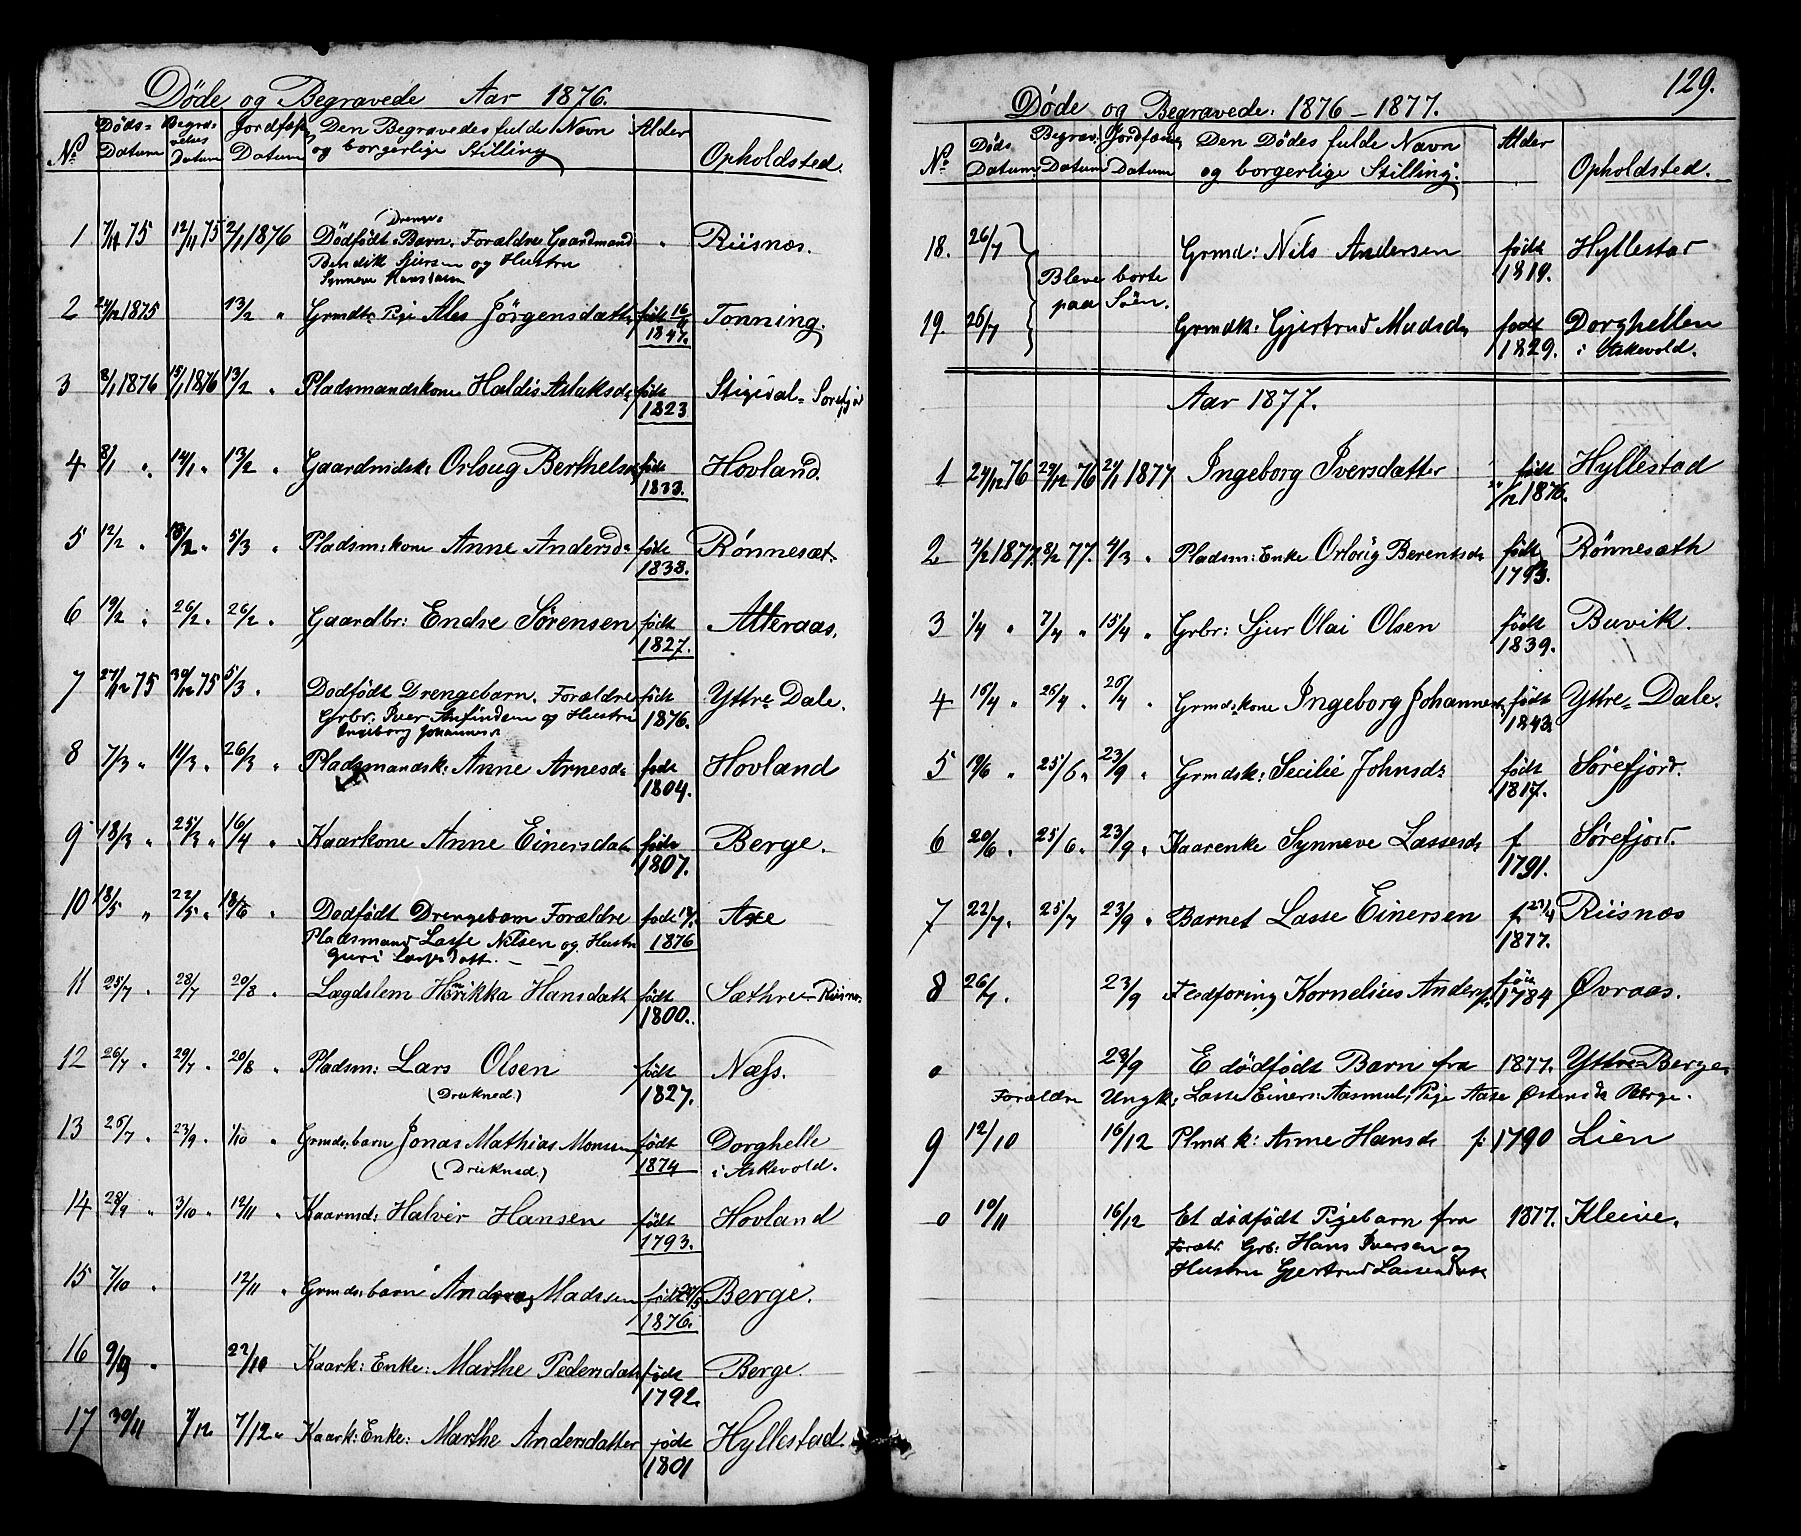 Døde og Begravede Aar 1876.
No Døds= Datum Begravelses Datum Jordfæst Datum Den Begravedes fulde Navn og borgerlige Stilling Alder Opholdsted.
1 7/11 75 12/11 75 2/1 1876 Dødfødt Drenge= Barn, Forældre Gaardmand " Riisnæs.
Bendik Sjursen og Hustru
Synneve
2 24/12 1875 13/2 " Grmdtr Pige Ales Jørgensdatter født 16/ 1847. Tonning.
3 8/1 1876 15/1 1876 13/2 " Pladsmandskone Haldis Aslaksdr født 1823 Stigedal= Sørefjord
4 8/1 " 14/1 " 13/2 " Gaardmdsk: Orloug Berthelsd født 1833. Hovland.
5 12/2 " 18/2 " 5/3 " Pladsm:kone Anne Andersdr født 1838. Rønnesæt.
6 19/2 " 26/2 " 26/2 " Gaardbr: Endre Sørensen født 1827. Atteraas.
7 27/12 75 30/12 75 5/3 " Dødfødt Drengebarn. Forældre født 1876. Yttre Dale.
Grbr. Iver Anfindsen og Hustru
Ingeborg Johannesd
8 7/3 " 11/3 " 26/3 " Pladsmandsk: Anne Arnesdr født 1804. Hovland
9 18/3 " 25/3 " 16/4 " Kaarkone Anne Einersdat født 1807. Berge.
10 18/5 " 22/5 " 18/6 " Dødfødt Drengebarn Forældre født 18/ 1876 Axe
Pladsmand Lasse Nilsen og Hustru
Guri Lassesdatt.
11 25/7 " 28/7 20/8 " Lægdslem Henrikka Hansdatt født 1800. Sæthre Riisnæs.
12 26/7 " 29/7 " 20/8 " Pladsm: Lars Olsen født 1827. Næss.
(Drukned.)
13 26/7 " 23/9 " 1/10 " Grmds:barn Jonas Mathias Monsen født 1874 Dorghelle i Askevold.
(Druknet.)
14 28/9 " 3/10 " 12/11 " Kaarmd: Halvor Hansen født 1793. Hovland
15 7/10 " 12/11 " Grmds:barn Andreas Madssen født 24/5 1876. Berge.
16 9/9 " 22/10 Kaark: Enke: Marthe Pedersdatt født 1792. Berge.
17 30/11 7/12 7/12 " Kaark:Enke: Marthe Andersdatter født 1801 Hyllestad.
129.
Døde og Begravede: 1876 – 1877.
No Døds Datum Begrav: Datum Jordfæstn Datum Den Dødes fulde Navn og borgerlige Stilling. Alder Opholdsted.
18. 26/7 Grmd: Nils Andersen født 1819. Hyllestad
Bleve borte
paa Søen.
19. 26/7 Grmdk: Gjertrud Madsdr født 1829. Dorghellen i Askevold.
Aar 1877.
1 24/12 76 29/12 76 21/1 1877 Ingeborg Iversdatter født /12 1876. Hyllestad
2 4/2 1877. 8/2 77. 4/3 " Pladsm: Enke Orloug Berentsdr født 1793. Rønnesæth
3 1/4 " 7/4 " 15/4 " Grbr: Sjur Olai Olsen født 1839. Buvik.
4 16/4 " 26/4 " 26/4 " Grmdskone Ingeborg Johannesd født 1843. Yttre= Dale.
5 19/6 " 25/6 " 23/9 " Grmdsk: Secilie Johnsdr født 1817. Sørefjord.
6 20/6 " 25/6 " 23/9 " Kaarenke Synneve Lassesdr f 1791. Sørefjord.
7 22/7 " 25/7 23/9 " Barnet Lasse Einersen f. 23/4 1877. Riisnæs
8 26/7. 23/9 Fledføring Kornelius Anders født 1784 Øvraas.
0 23/9 E dødfødt Barn fra 1877. Yttre Berge.
Forældre Ungk: Lasse Einers: Aasmul, Pige Aase Østensdr Berge.
9 12/10 16/12 Plmdk: Anne Hansdr f: 1790 Lien
0 10/11 16/12 Et dødfødt Pigebarn fra 1877. Kleive.
Foræld. Grb: Hans Iversen og
Hustru Gjertrud Lassesdatt